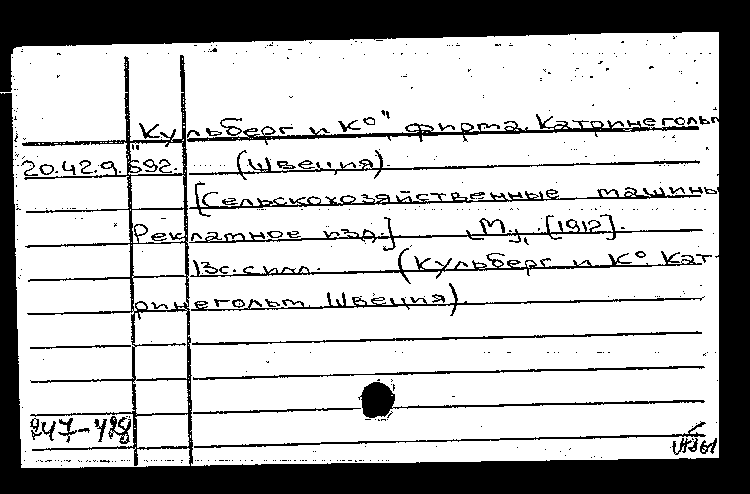 "Кульберг и К°", фирма. Катринегольм
20.42.9.592. (Швеция)
[Сельскохозяйственные машины
Рекламное изд.] [М., [1912].
13с. с илл. (Кульберг и К° Кат-
ринегольм Швеция).
247-498